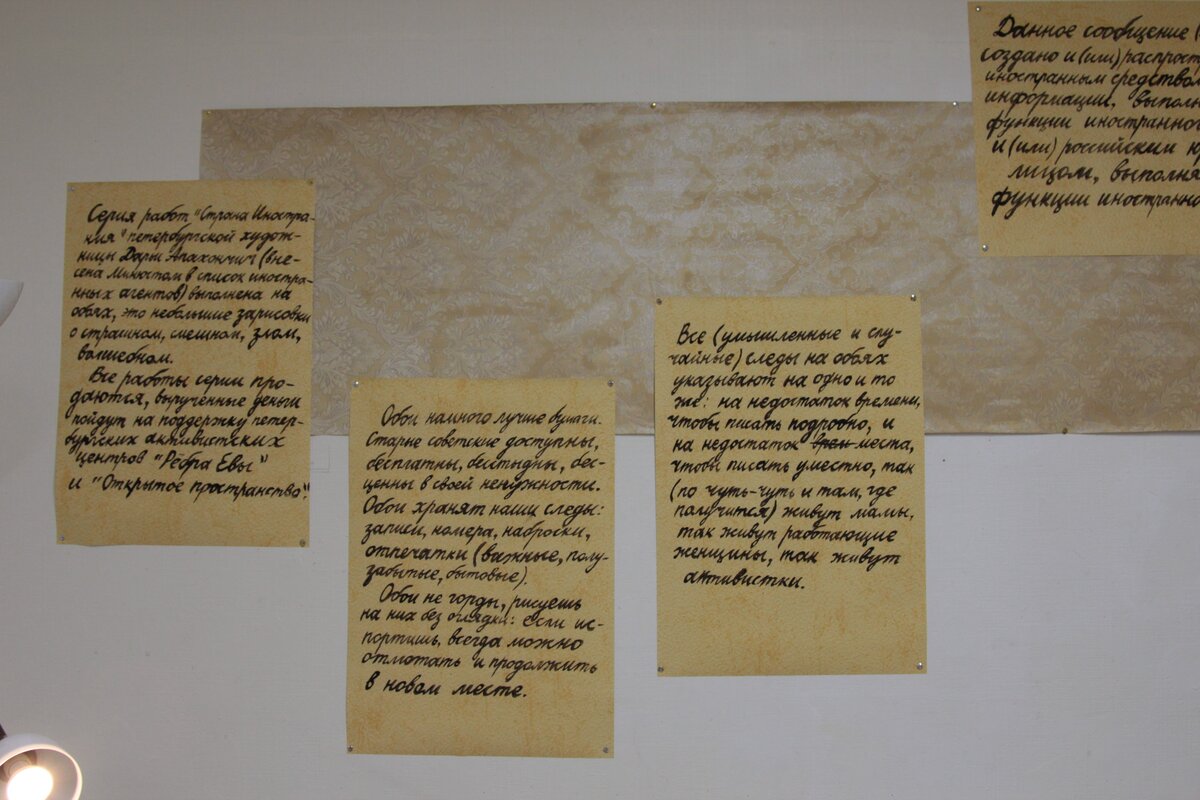 Серия работ "Страна Иностра-
ния" петербургской худож-
ницы Дарьи Апахончич (вне-
сена Минюстом в список иностра-
нных агентов) выполнена на
обоях, это небольшие зарисовки
о страшном, смешном, злом,
волшебном.
Все работы серии про-
даются, вырученные деньги
пойдут на поддержку петер-
бургских активистских
центров "Рёбра Евы"
и "Открытое пространство".
Обои намного лучше бумаги.
Старые советские доступны,
бесплатны, бесстыдны, бес-
ценны в своей ненужности.
Обои хранят наши следы:
записи, номера, наброски,
отпечатки (важные, полу-
забытые, бытовые).
Обои не горды, рисуешь
на них без оглядки: если ис-
портишь, всегда можно
отмотать и продолжить
в новом месте.
Все (умышленные и слу-
чайные) следы на обоях
указывают на одно и то
же: на недостаток времени,
чтобы писать подробно, и
на недостаток врем места,
чтобы писать уместно, так
(по чуть-чуть и там, где
получится) живут мамы,
так живут работающие
женщины, так живут
активистки.
Данное сообщение (
создано и (или) распрост
иностранным средством
информации, выполн
функции иностранног
и (или) российским ю
лицом, выполня
функции иностранно